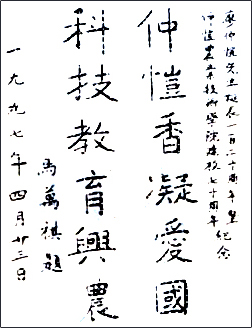 廖仲愷先生誕辰一百二十周年暨
仲愷農業技術學院建校七十周年紀念
仲愷香凝愛國
科技教育興農
馬萬祺題
一九九七年四月廿三日